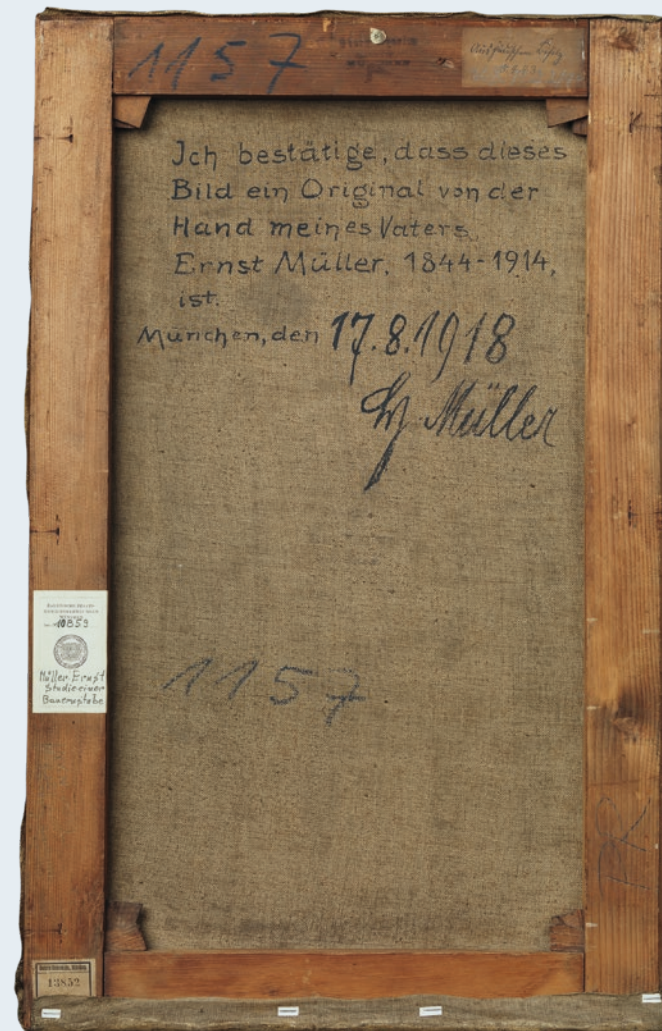 1157
Ich bestätige, dass dieses
Bild ein Original von der
Hand meines Vaters,
Ernst Müller, 1844-1914,
ist.
München, den 17.8.1918
Müller
10859
Müller Ernst
Studie einer
Bauernstube
1157
13852